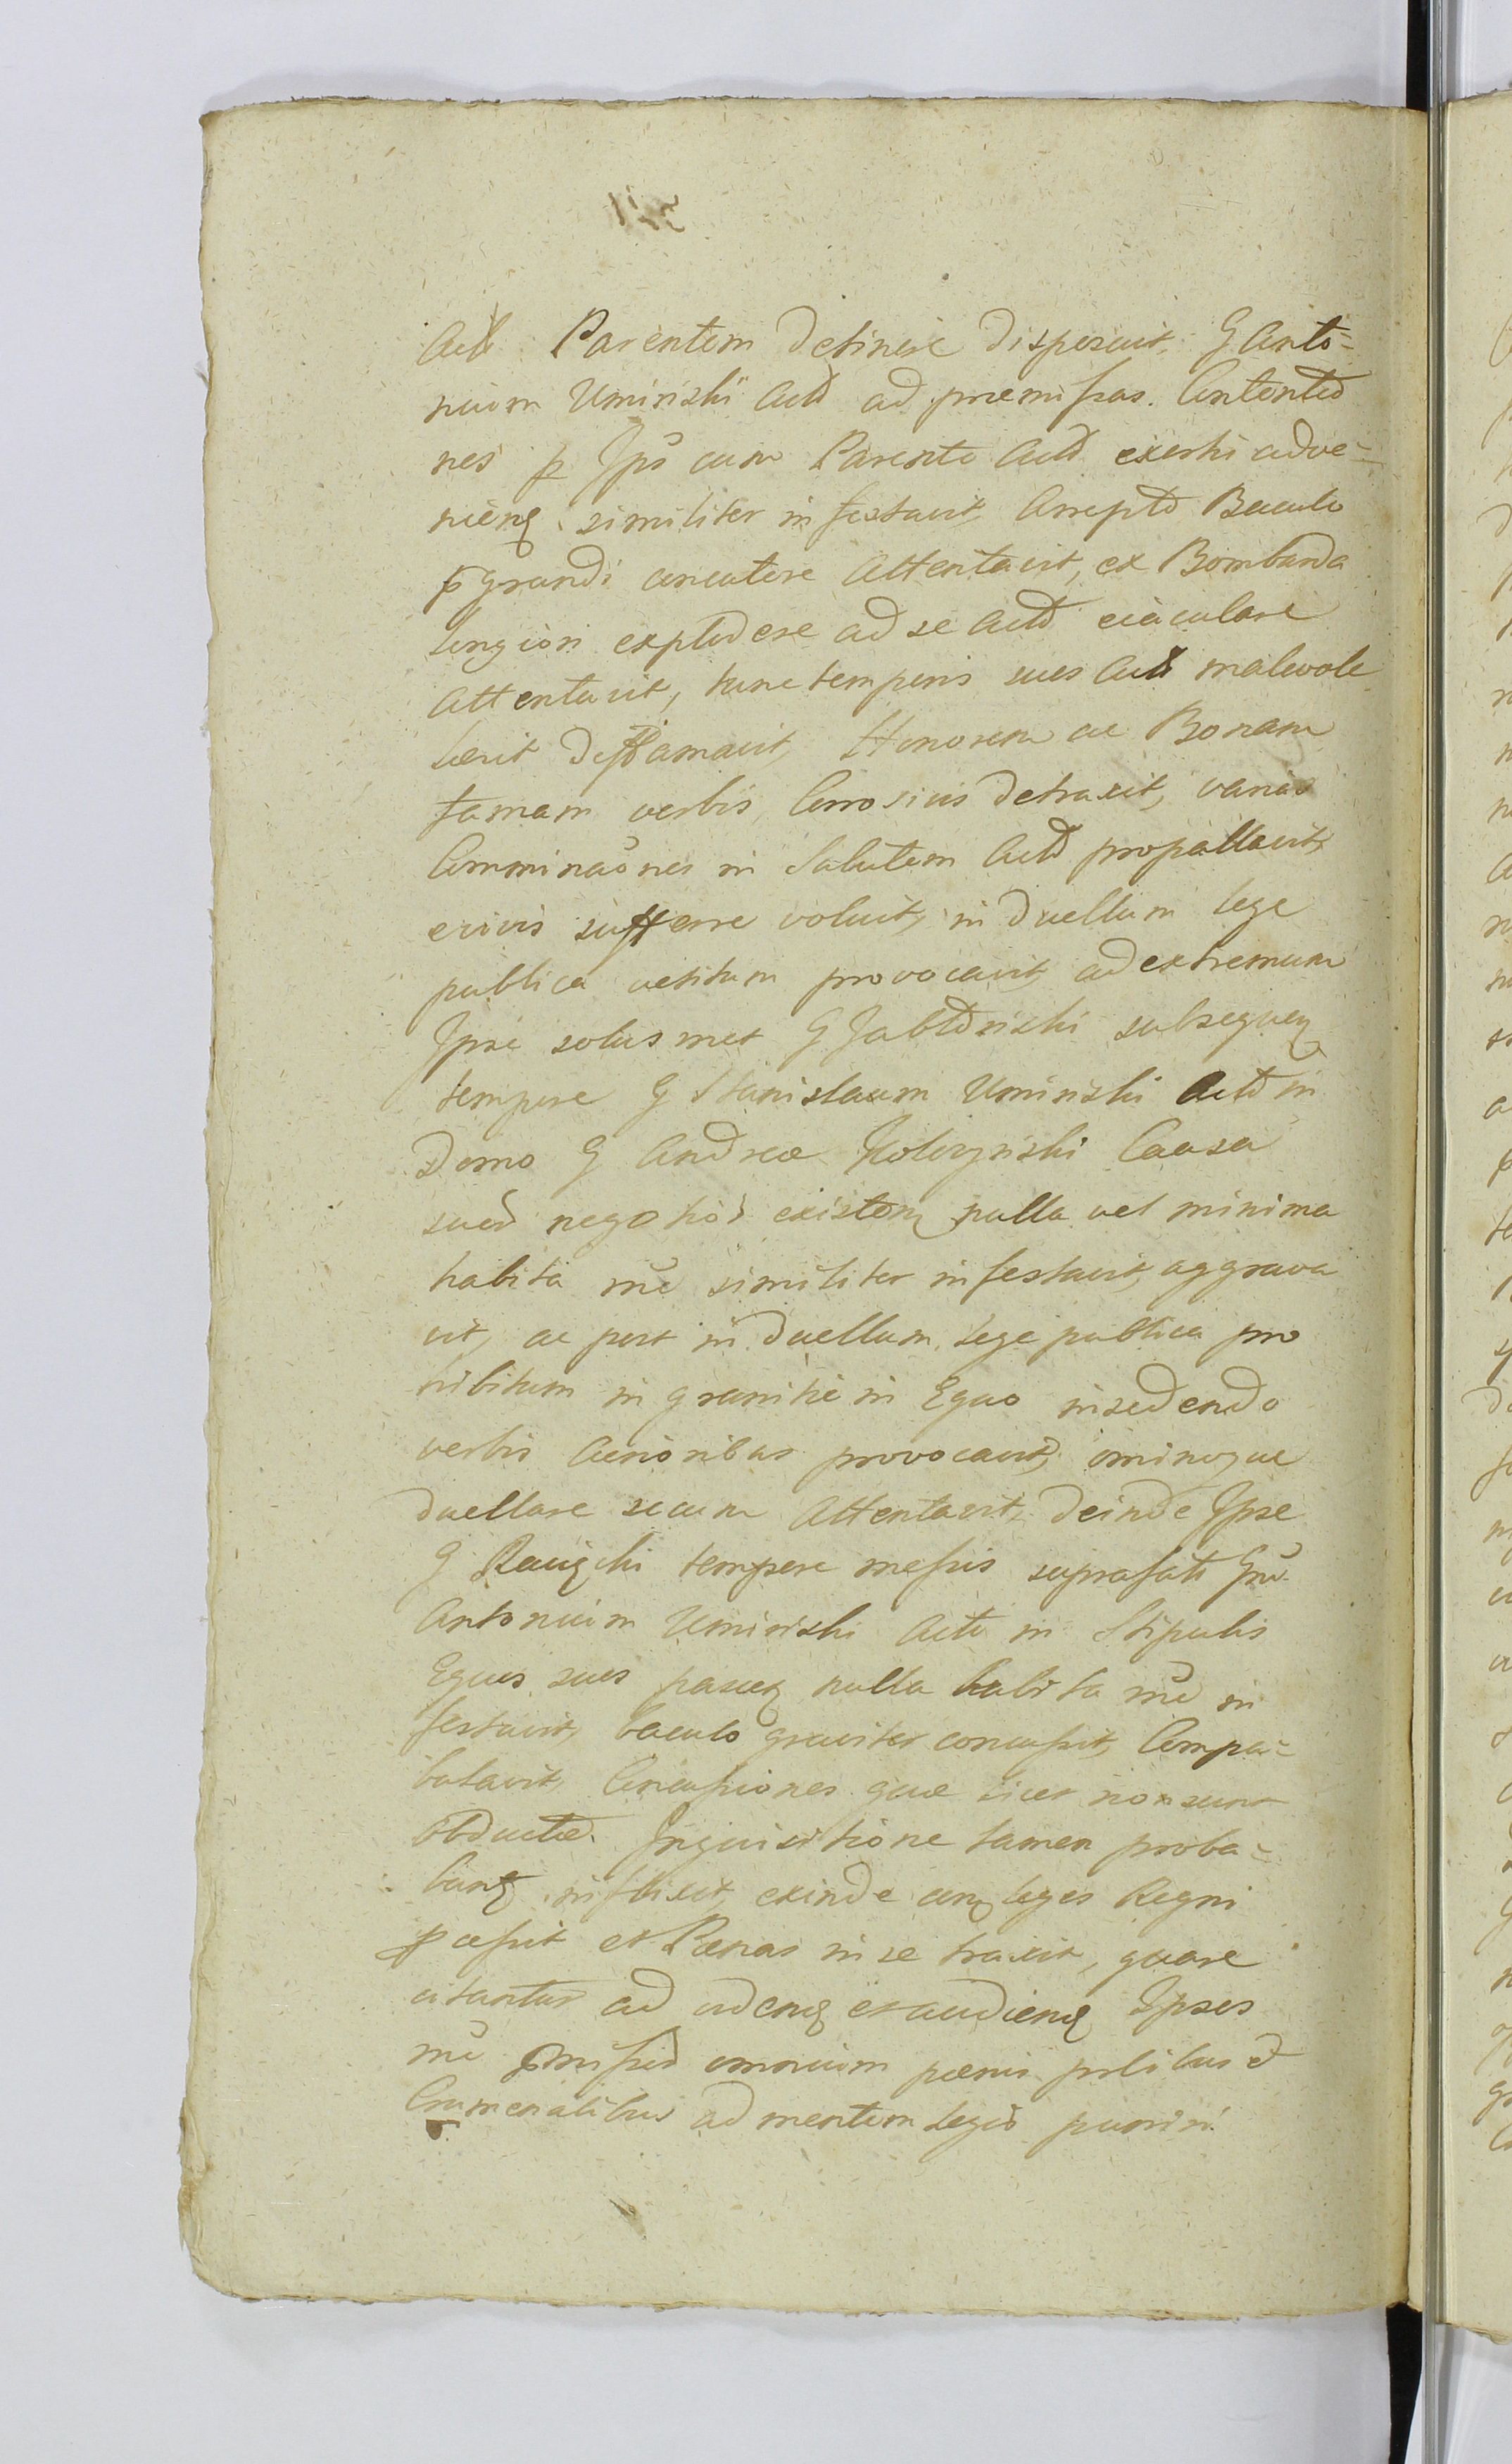 Actt Parentem detinere disposuit, G Anto-
nium Uminski Actt ad præmissas Contentio
nes p Ipsū cum Parente Actt exerti adve-
nienq similiter infestavit, Arrepto Baculo
p grandi concutere Attentavit, ex Bombarda
longiori explodere ad se Actt eiaculare
Attentavit, tunc temporis suos Actt malevole
deffamavit, Honorem ac Bonam
famam verbis Corrosivis detraxit, varias
Comminaōnes in Salutem Actt propallavit,
e vivis sufferre voluit, in duellum lege
publica vetitum provocavit, ad extremum
Ipse solus met G Jabłoński subsequen
tempore G Stanislaum Uminski Actt in
Domo G Andreæ Causa
suor negotior existen nulla vel minima
habita rñe similiter infestavit, aggrava
vit, ac post in duellum, lege publica pro
hibitum in granitie in Equo insedendo
verbis Acrioribus provocavit, ōminoque
duellare secum Attentavit, deinde Ipse
G tempore messis suprafati Gñ
Antonium Uminski Actt in Stipulis
Equos suos pascen nulla habita rñe in
festavit, baculo graviter concussit, Compu-
butavit, Concussiones quæ licet non sunt
obductæ. Inquisitione tamen proba-
bunt, inflixit, exinde cont leges Regni
pcessit et Pænas in se traxit, quare
citantur ad videnq et audienq Ipsos
rñe pmissor omnium pænis pslibus et
Crimenalibus ad mentem legis puniri